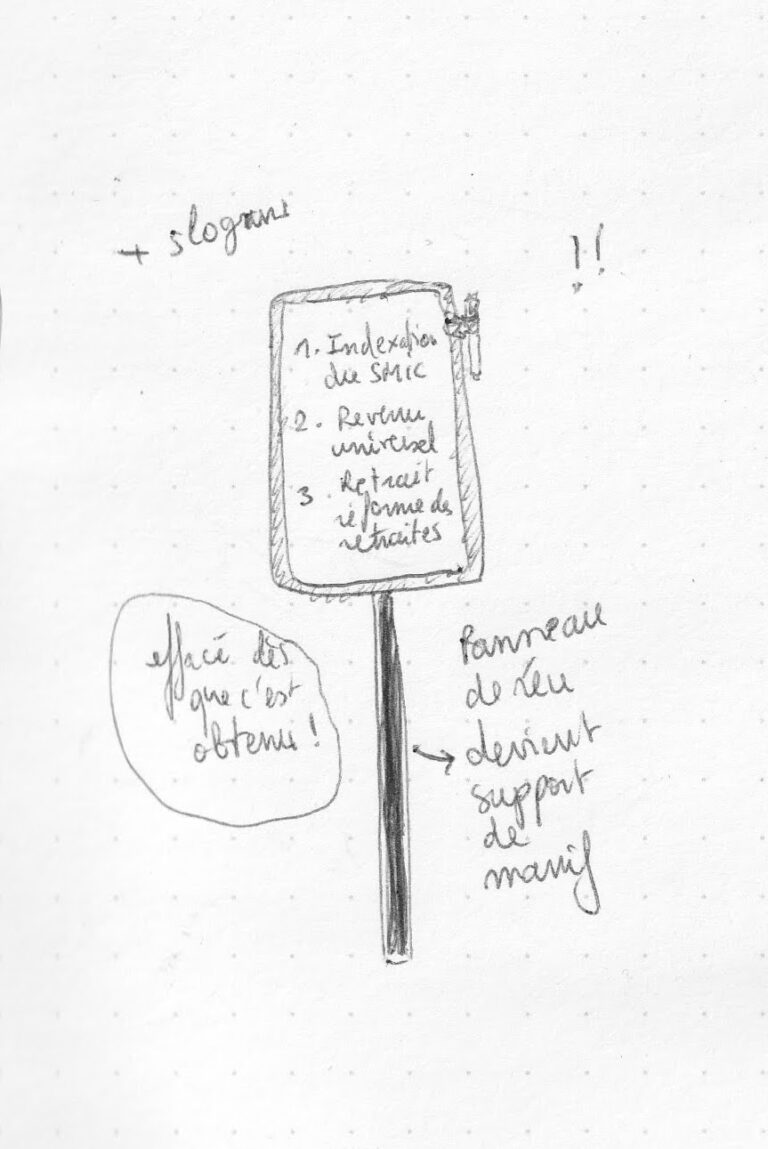 + slogans
!!
1. Indexation
du SMIC
2. Revenu
universel
3 Retrait
réforme des
retraites
effacé dès
que c'est
obtenu!
Panneau
de réu
→ devient
support
de
manif